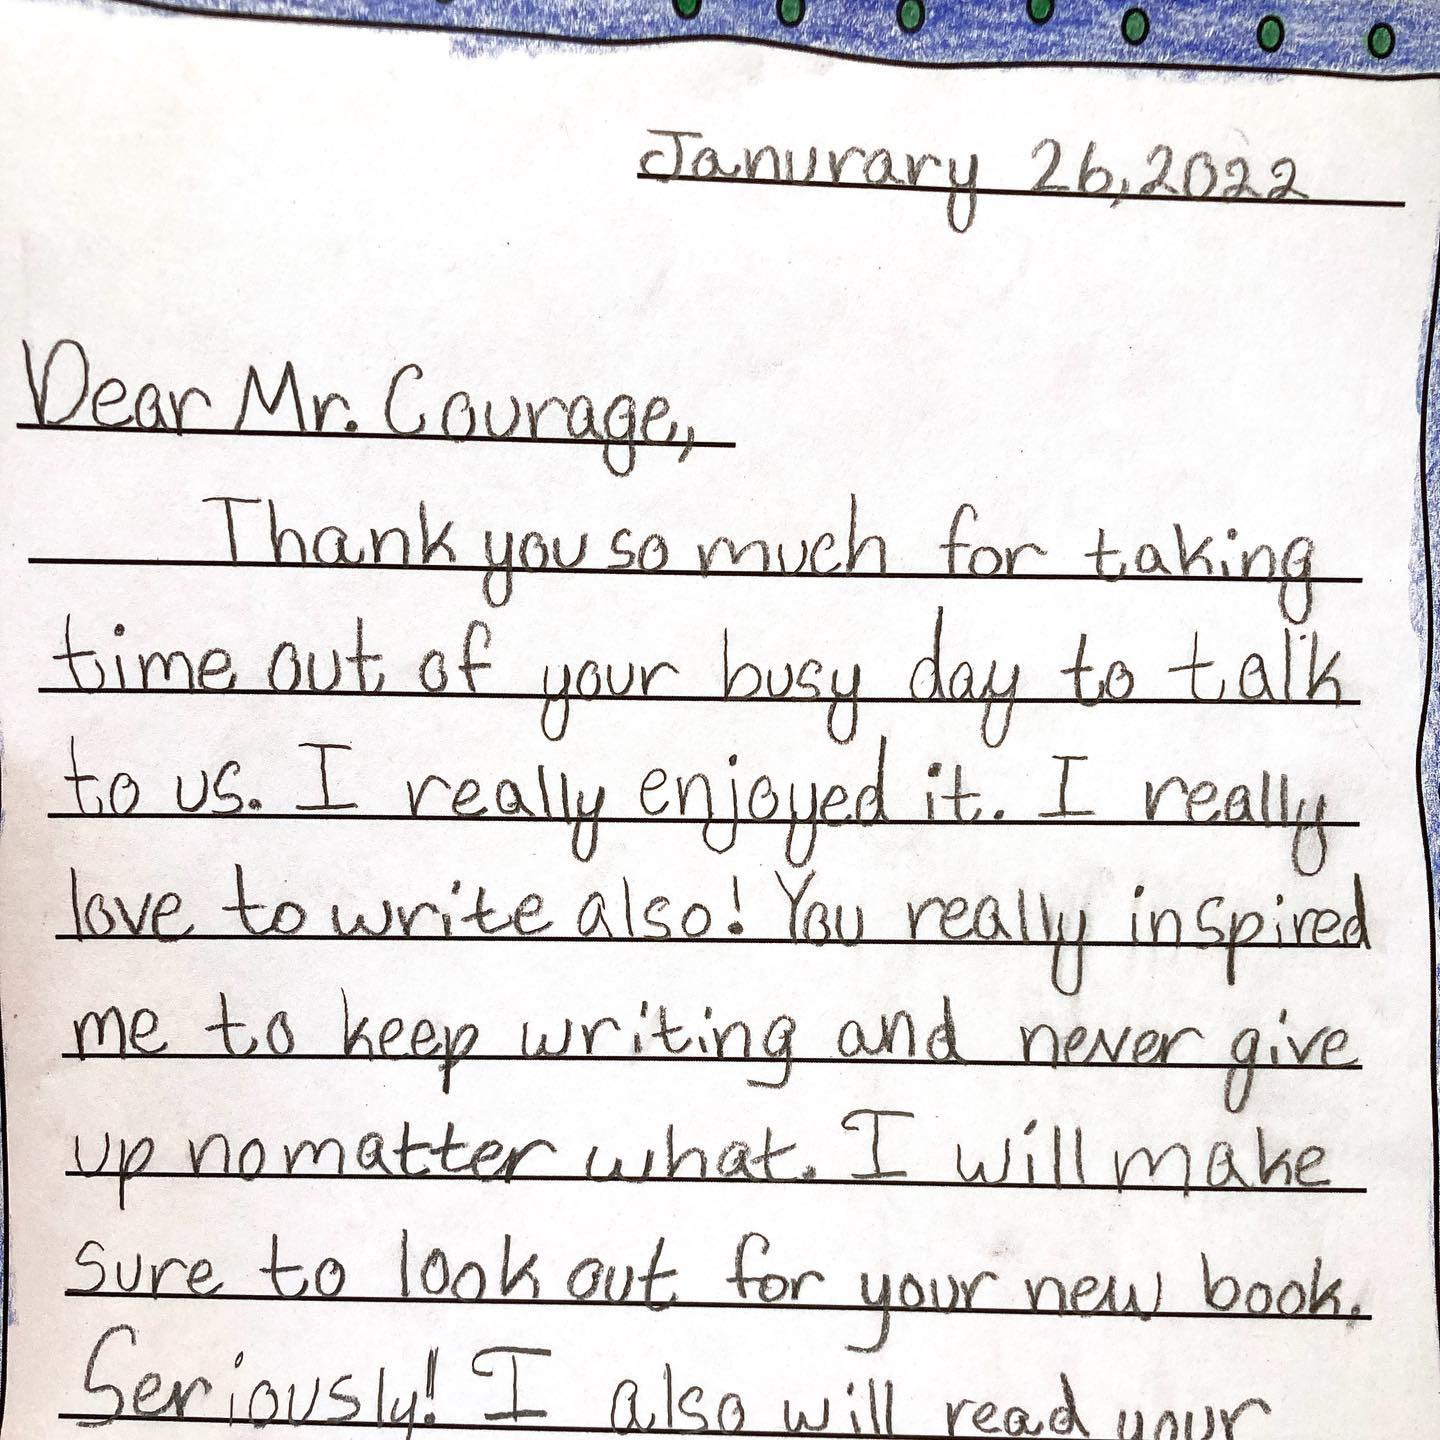 Janurary 26,2022
Dear Mr. Courage,
Thank you so much for taking
time out of your busy day to talk
to us. I really enjoyed it. I really
love to write also! You really inspired
me to keep writing and never give
up no matter what. I will make
sure to look out for your new book.
Seriously! I also will read your